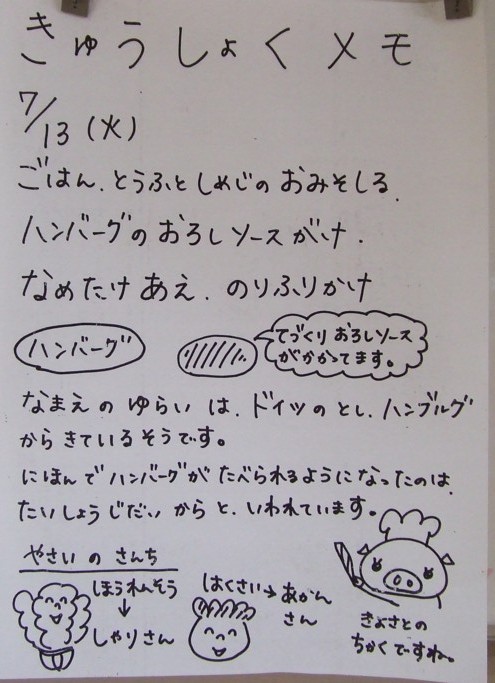 きゅうしょくメモ
7/13(火)
ごはん.とうふとしめじのおみそしる.
ハンバーグのおろしソースがけ.
なめたけあえ.のりふりかけ
ハンバーグ
てづくりおろしソース
がかかってます。
なまえのゆらいは、ドイツのとし、ハンブルグ
からきているそうです。
にほんでハンバーグがたべられるようになったのは、
たいしょうじだいからと、いわれています。
やさいのさんち
ほうれんそう
↓
しゃりさん
はくさい→あかん
さん
きよさとの
ちかくですね。